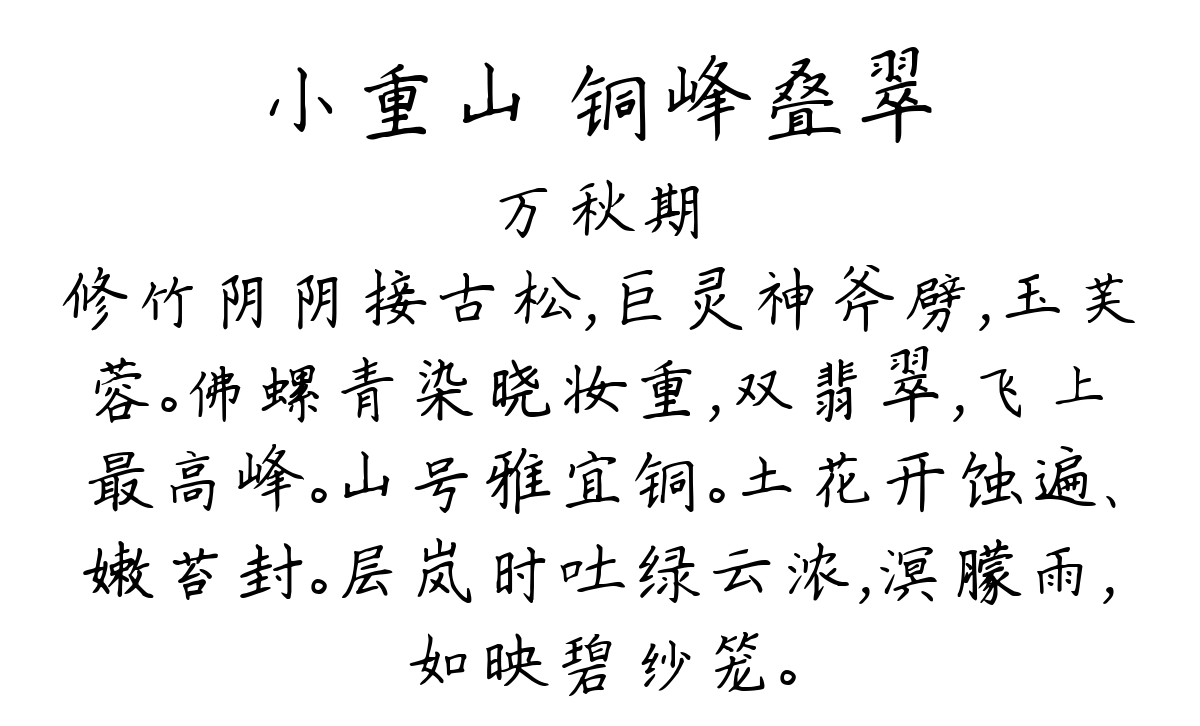 小重山 铜峰叠翠
万秋期
修竹阴阴接古松,巨灵神斧劈,玉芙
蓉。佛螺青染晓妆重,双翡翠,飞上
最高峰。山号雅宜铜。土花开蚀遍、
嫩苔封。层岚时吐绿云浓,溟朦雨,
如映碧纱笼。